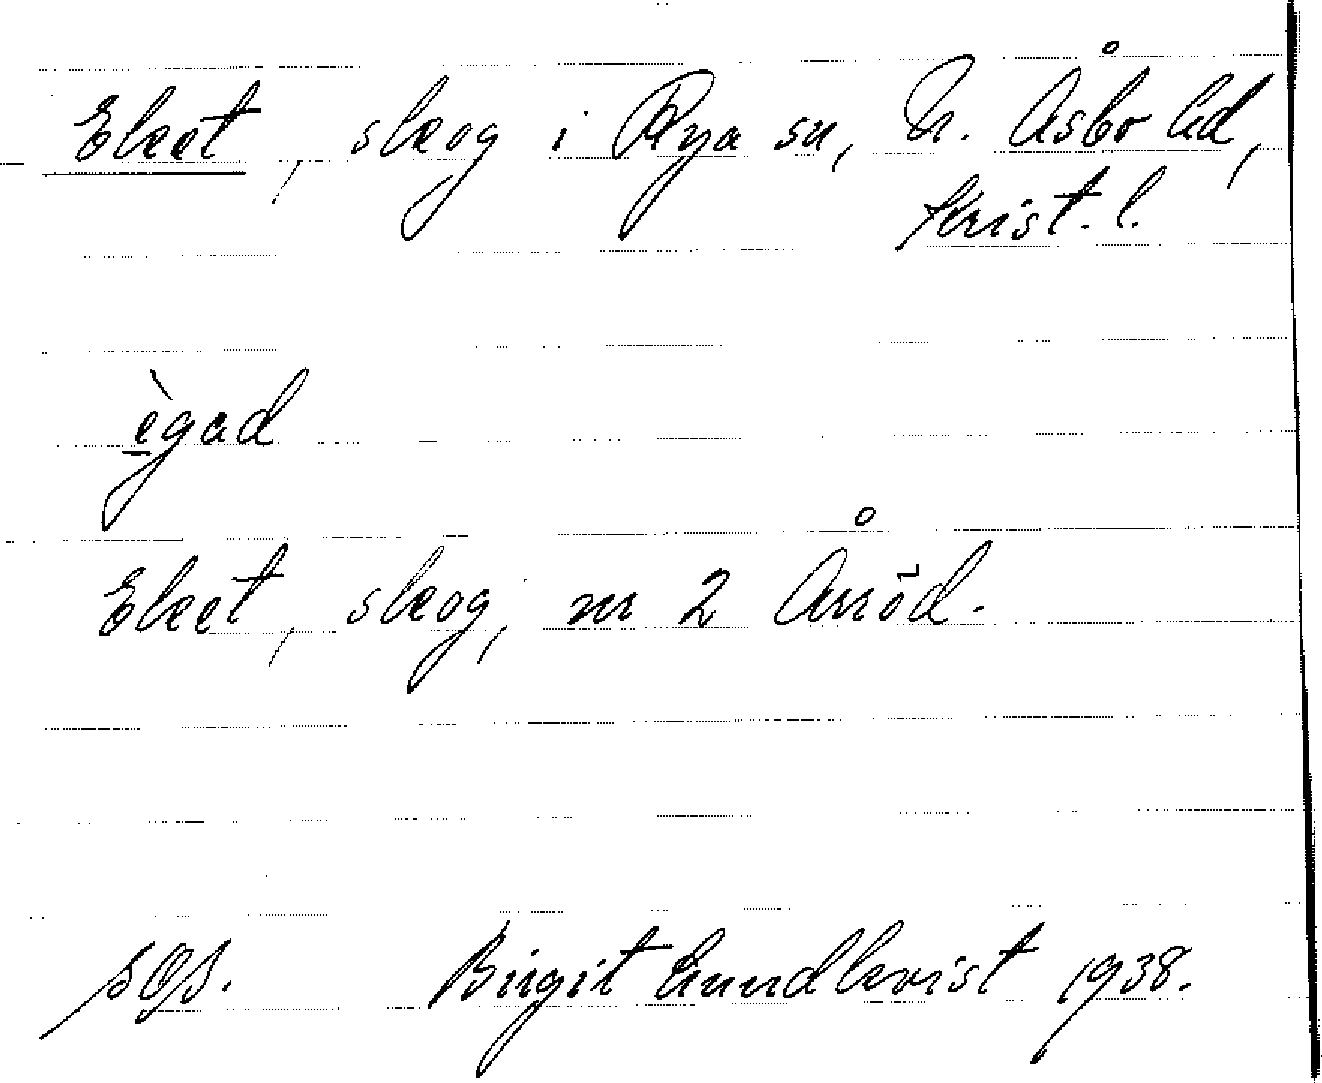 Eket, skog i Rya sn, N. Åsbo hd,
Krist. l.
ègad
Eket, skog, nr 2 Åröd.
SOS. Birgit Lundkvist 1938.